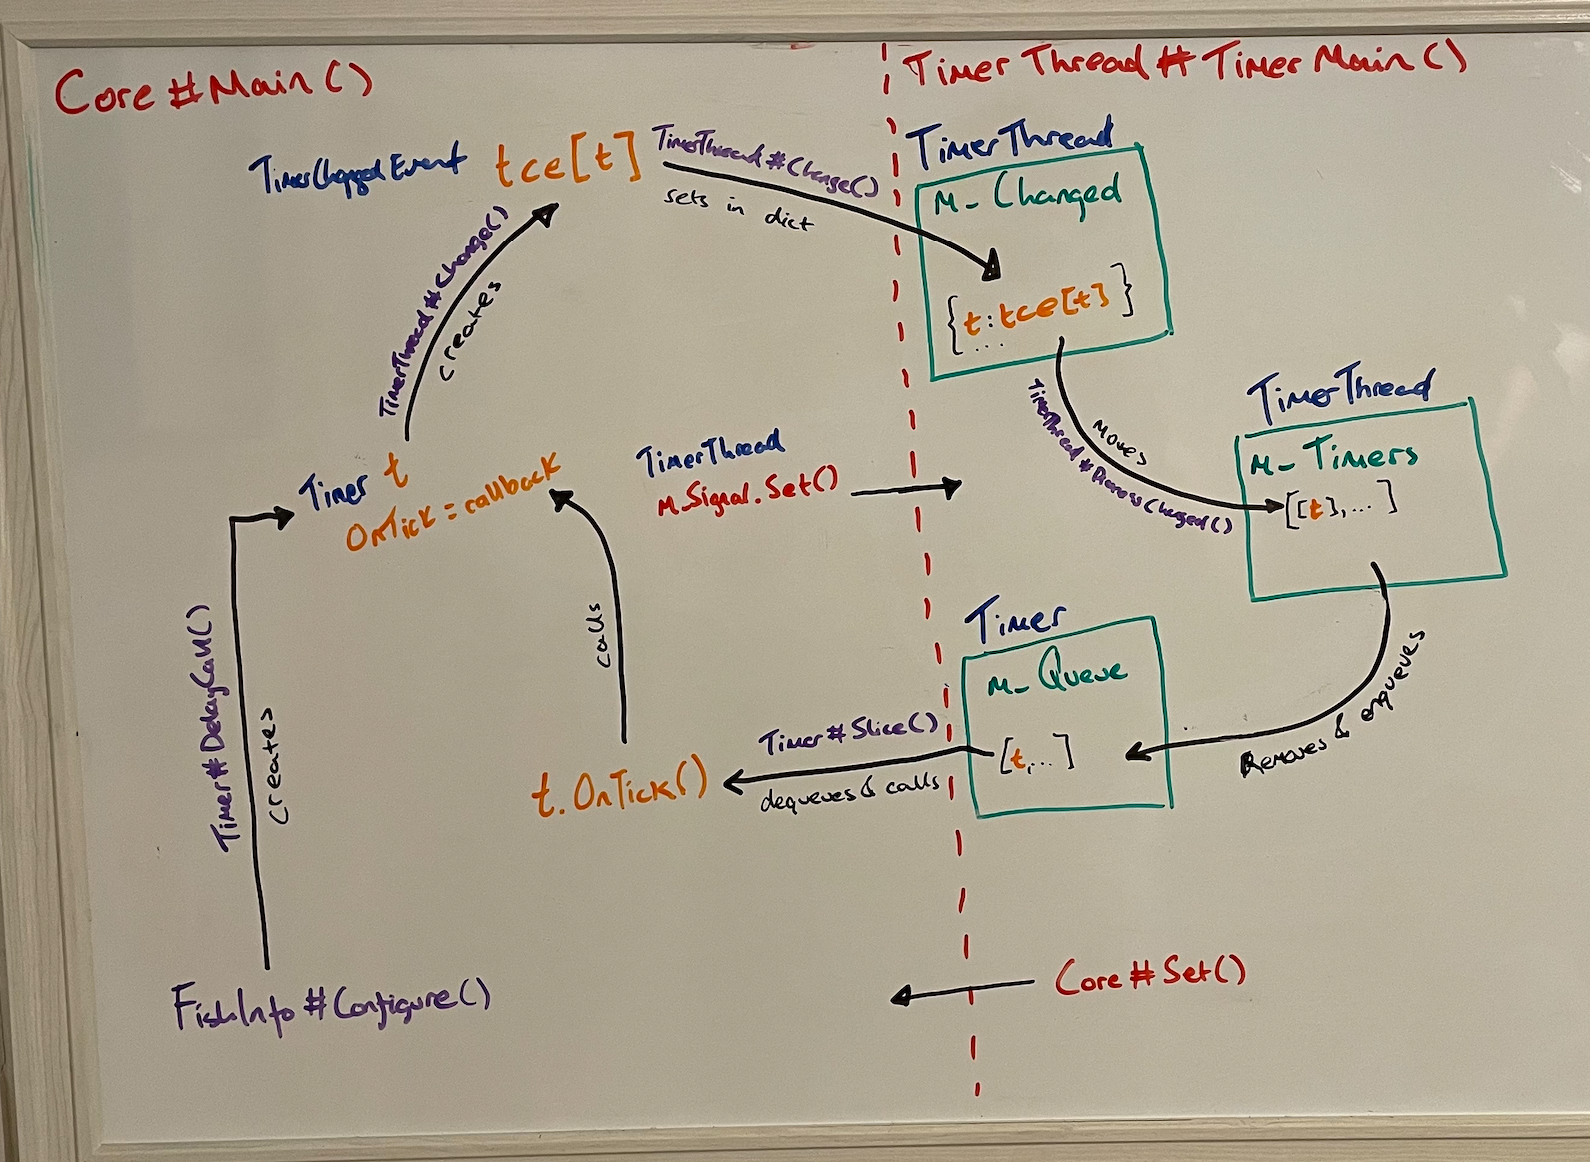 Core#Main()
TimerThread#TimerMain()
TimerChangedEvent tce[t]
TimerThread#Change()
sets in dict
TimerThread
m_Changed
{t:tce[t]
...}
TimerThread#Change()
creates
TimerThread
m_Timers
[[t],...]
moves
TimerThread#ProcessChanged()
Timer t
OnTick=callback
TimerThread
m_Signal.Set()
Timer
m_Queue
[t,...]
Removes & enqueues
Timer#Slice()
dequeues & calls
t.OnTick()
calls
Timer#DelayCall()
creates
Core#Set()
FishInfo#Configure()